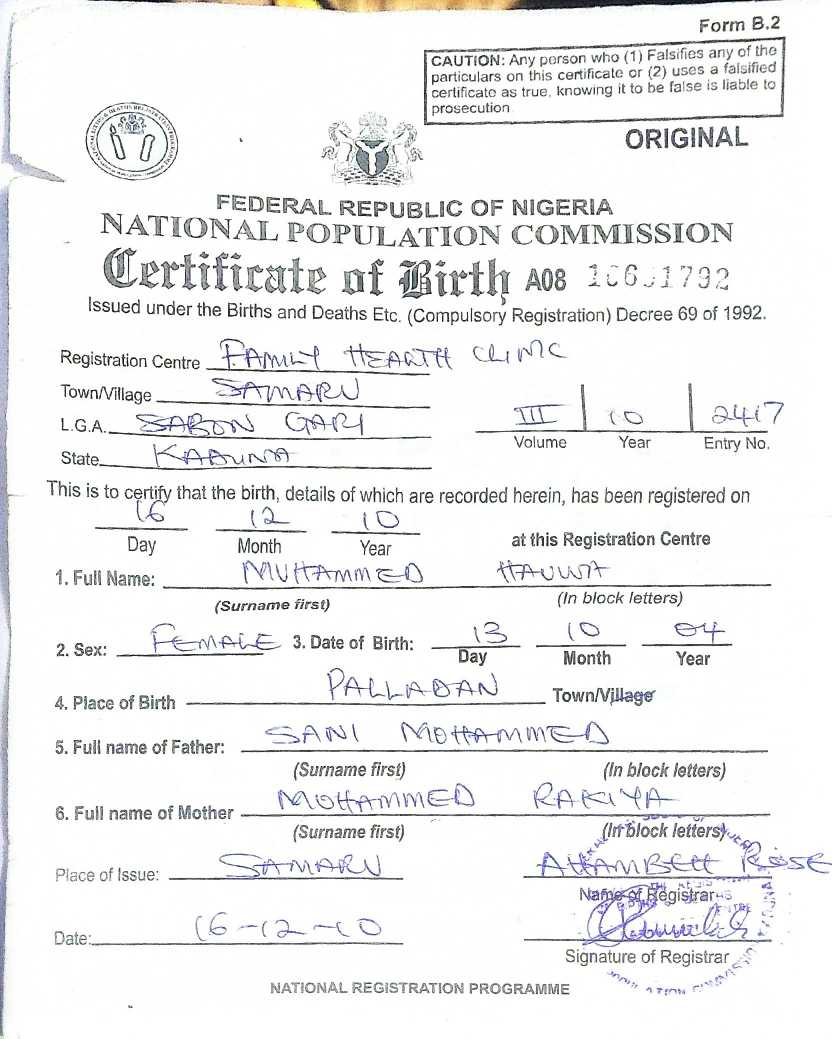 Form B.2
CAUTION: Any person who (1) Falsifies any of the
particulars on this certificate or (2) uses a falsified
certificate as true, knowing it to be false is liable to
prosecution
ORIGINAL
FEDERAL REPUBLIC OF NIGERIA
NATIONAL POPULATION COMMISSION
Certificate of Birth A08
Issued under the Births and Deaths Etc. (Compulsory Registration) Decree 69 of 1992.
Registration Centre FAMILY HEALTH CLINIC
Town/Village SAMARU
L.G.A. SABON GARI
State KADUNA
III 10 2417
Volume Year Entry No.
This is to certify that the birth, details of which are recorded herein, has been registered on
16 12 10
Day Month Year at this Registration Centre
1. Full Name: MUHAMMED HAUWA
(Surname first) (In block letters)
2. Sex: FEMALE 3. Date of Birth: 13 10 04
Day Month Year
4. Place of Birth PALLADAN Town/Village
5. Full name of Father: SANI MOHAMMED
(Surname first) (In block letters)
6. Full name of Mother MOHAMMED RAKIYA
(Surname first) (In block letters)
Place of Issue: SAMARU ROSE
Name of Registrar
Date: 16-12-10
Signature of Registrar
NATIONAL REGISTRATION PROGRAMME